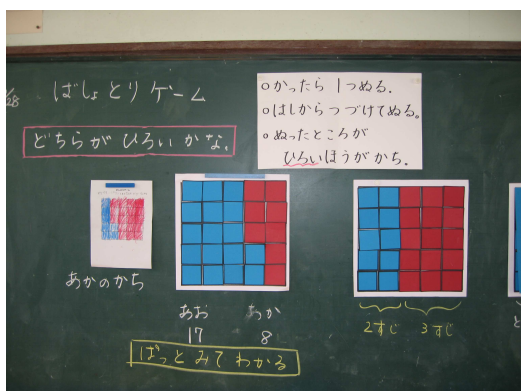 28 ばしょとりゲーム
どちらがひろいかな。
○かったら1つぬる.
○はしからつづけてぬる。
○ぬったところが
ひろいほうがかち.
あかのかち
あお あか
17 8
2すじ 3すじ
ぱっとみてわかる